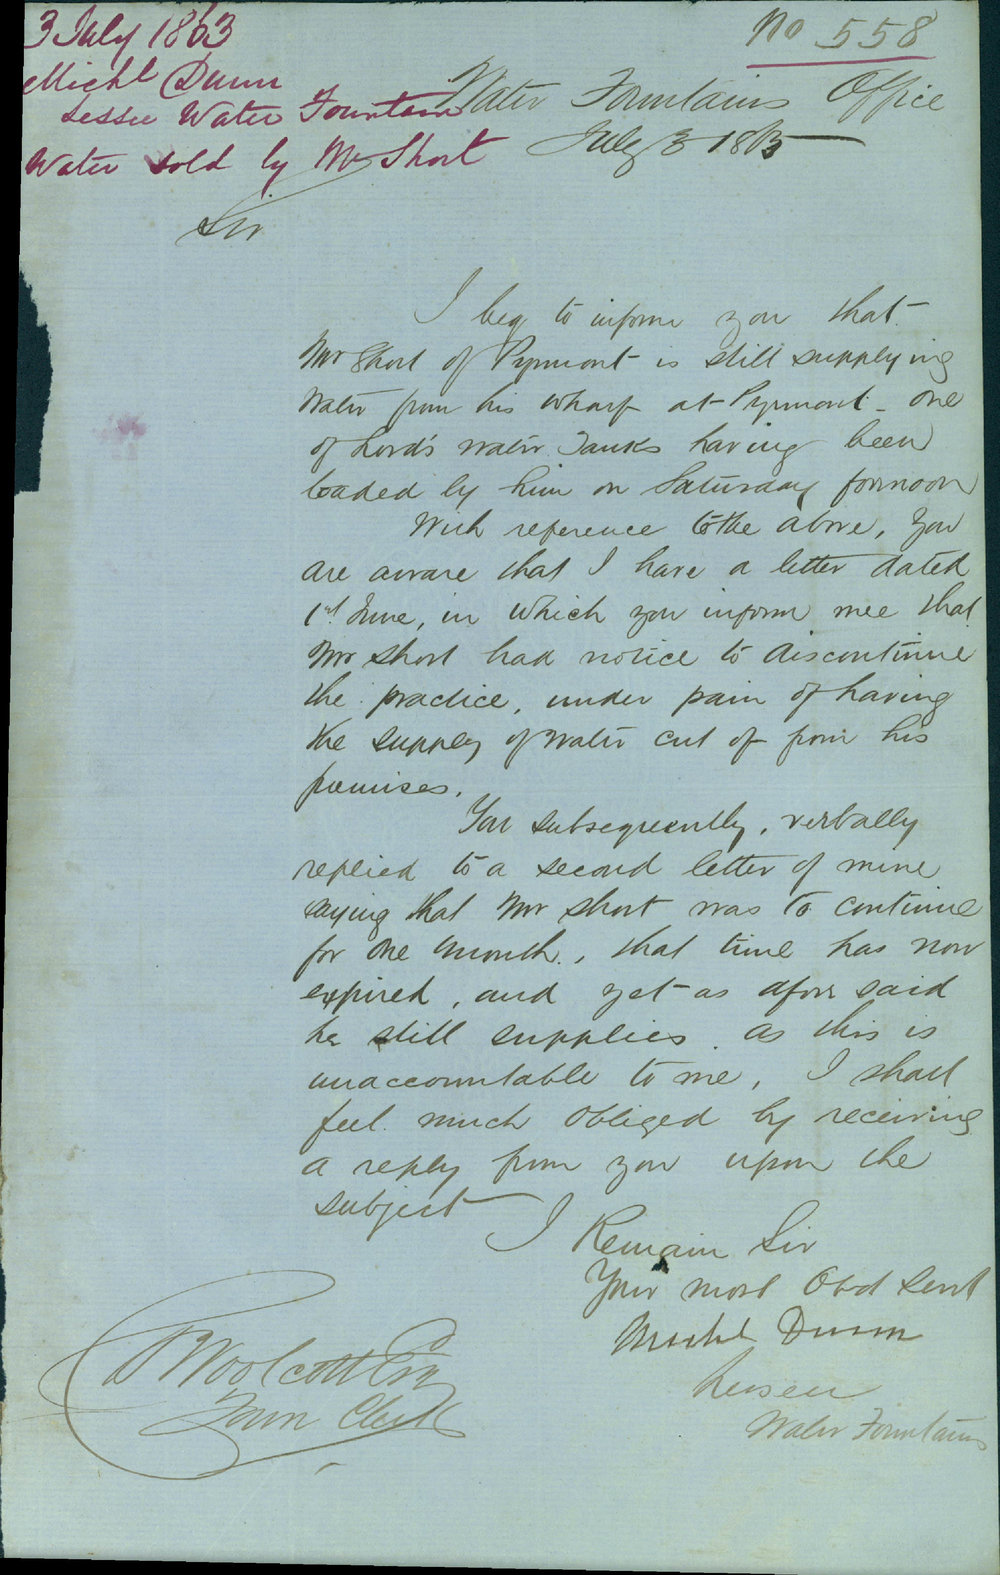 3 July 1863
No 558
Michl Dunn
Lessee Water Fountain
Water sold by Mr Short
Water Fountains Office
July 3 1863
Sir
I beg to inform you that
Mr Short of Pyrmont is still supplying
Water from his wharf at Pyrmont - one
of Lord's water Tanks having been
loaded by him on Saturday fornoon
With reference to the above, you
are aware that I have a letter dated
1st June, in which you inform mee that
Mr Short had notice to discontinue
the practice, under pain of having
the supply of Water cut of from his
premises.
You subsequently, verbally
replied to a second letter of mine
saying that Mr Short was to continue
for one month., that time has now
expired, and yet as afore said
he still supplies. as this is
unaccountable to me, I shall
feel much obliged by receiving
a reply from you upon the
subject
I Remain Sir
Your most Obd Servt
Michl Dunn
Lessee
Water Fountains
Woolcott Esq
Town Clerk